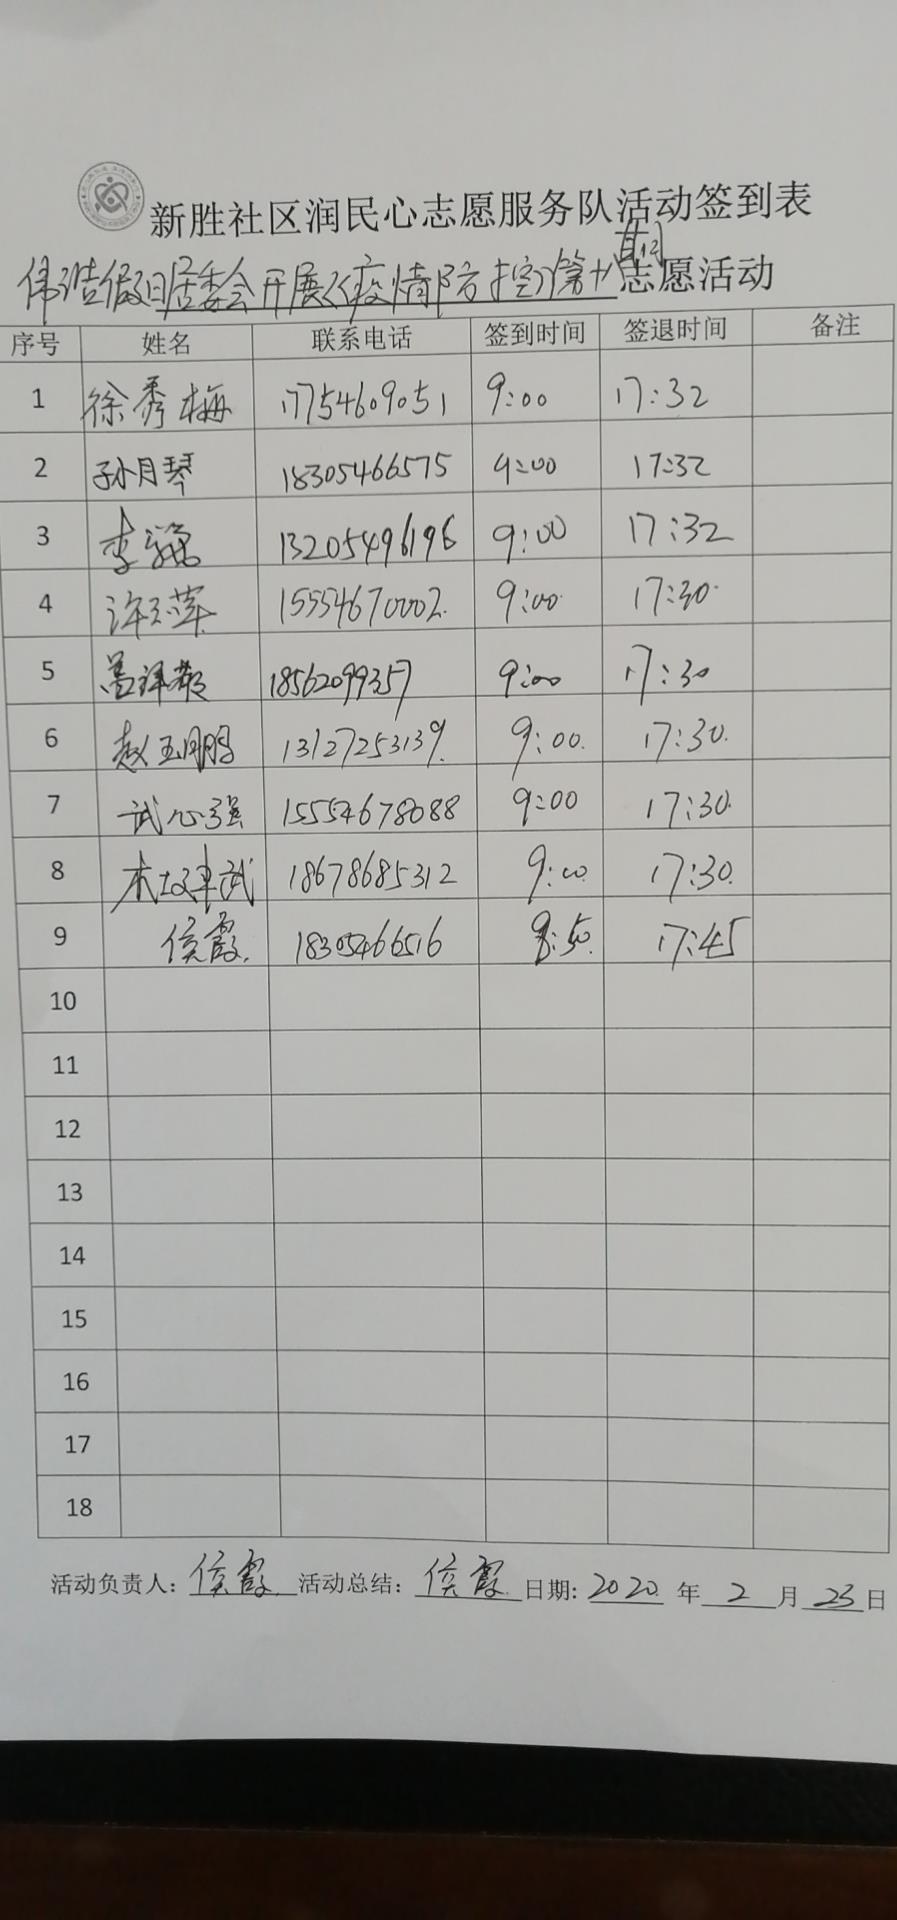 新胜社区润民心志愿服务队活动签到表
伟浩假日居委会开展《疫情防控》第十八期志愿活动
序号 姓名 联系电话 签到时间 签退时间 备注
1 徐秀梅 17754609051 9:00 17:32
2 孙月琴 18305466575 9:00 17:32
3 李 13205496196 9:00 17:32
4 许玉萍 15554670002 9:00 17:30
5 18562099357 9:00 17:30
6 赵玉鹏 13127253139 9:00 17:30
7 武心强 15554678088 9:00 17:30
8 18678685312 9:00 17:30
9 侯霞 18305466516 8:50 17:45
10
11
12
13
14
15
16
17
18
活动负责人:侯霞 活动总结:侯霞 日期:2020年2月23日